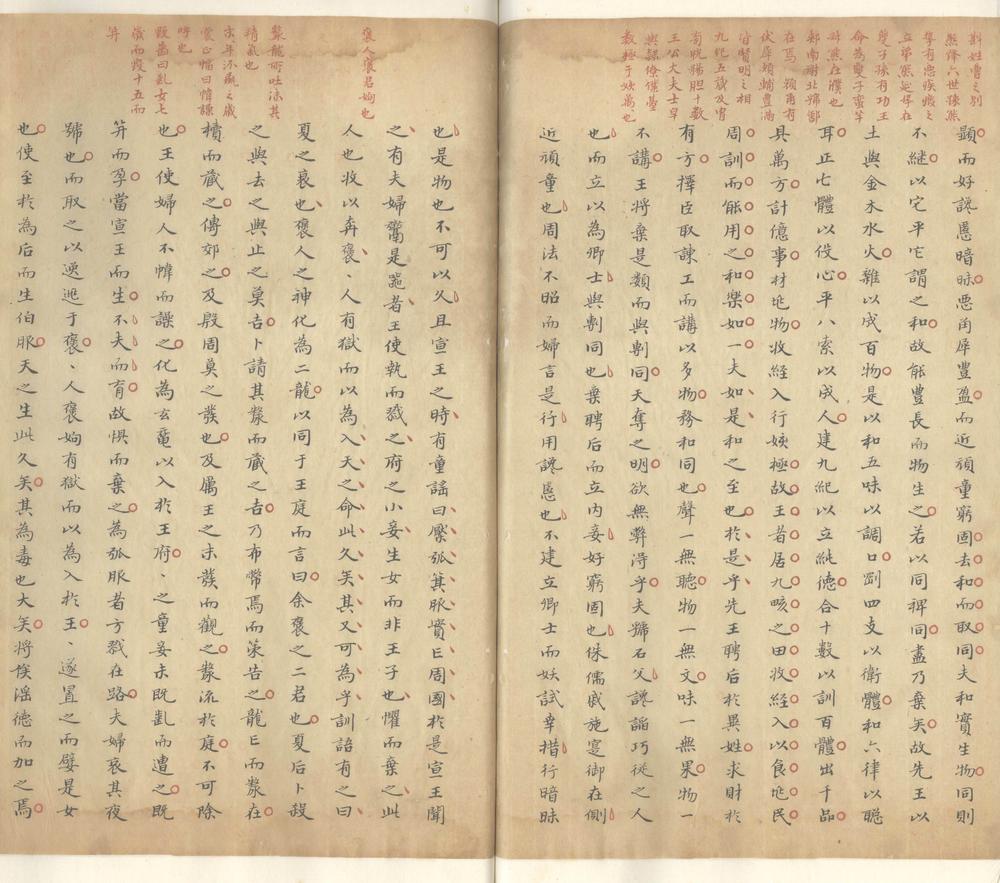 斟姓曹之別
熊繹六世孫熊
摯有惡疾楚之
立弟熊延摯在
夔子孫有功王
命為夔子蠻芉
叔熊在濮也
鄢南謝北虢鄶
在焉 頰角有
伏犀頰輔豐滿
皆賢明之相
九紀五臟及胃
旁胱腸胆十數
王公大夫士皁
輿隸僚僕臺
數極于姟萬也
顯而好讒慝暗昧惡角犀豐盈而近頑童窮固去和而取同夫和實生物同則
不繼以它平它謂之和故能豐長而物生之若以同裨同盡乃棄矣故先王以
土與金木水火雜以成百物是以和五味以調口剛四支以衛體和六律以聰
耳正七體以役心平八索以成人建九紀以立純德合十數以訓百體出千品
具萬方計億事材兆物收經入行姟極故王者居九畡之田收經入以食兆民
周訓而能用之和樂如一夫如是和之至也於是乎先王聘后於異姓求財於
有方擇臣取諫工而講以多物務和同也聲一無聽物一無文味一無果物一
不講王將棄是類而與剸同天奪之明欲無弊得乎夫虢石父讒諂巧從之人
也而立以為卿士與剸同也棄聘后而立內妾好窮固也侏儒戚施寔御在側
近頑童也周法不昭而婦言是行用讒慝也不建立卿士而妖試幸措行暗昧
褒人褒君姁也
漦龍所吐沫其
精氣也
末年流彘之歲
裳正幅曰幃譟
呼也
毀齒曰齓女七
歲而毀十五而
笄
也是物也不可以久且宣王之時有童謠曰檿弧萁服實亡周國於是宣王聞
之有夫婦鬻是器者王使執而戮之府之小妾生女而非王子也懼而棄之此
人也收以奔褒、人有獄而以為入天之命此久矣其又可為乎訓語有之曰
夏之衰也褒人之神化為二龍以同于王庭而言曰余褒之二君也夏后卜殺
之與去之與止之莫吉卜請其漦而藏之吉乃布幣焉而策告之龍亡而漦在
櫝而藏之傳郊之及殷周莫之發也及厲王之末發而觀之漦流於庭不可除
也王使婦人不幃而譟之化為玄黿以入於王府、之童妾未既齓而遭之既
笄而孕當宣王而生不夫而育故懼而棄之為弧服者方戮在路夫婦哀其夜
號也而取之以逸逃于褒、人褒姁有獄而以為入於王、遂置之而嬖是女
也使至於為后而生伯服天之生此久矣其為毒也大矣將俟淫德而加之焉